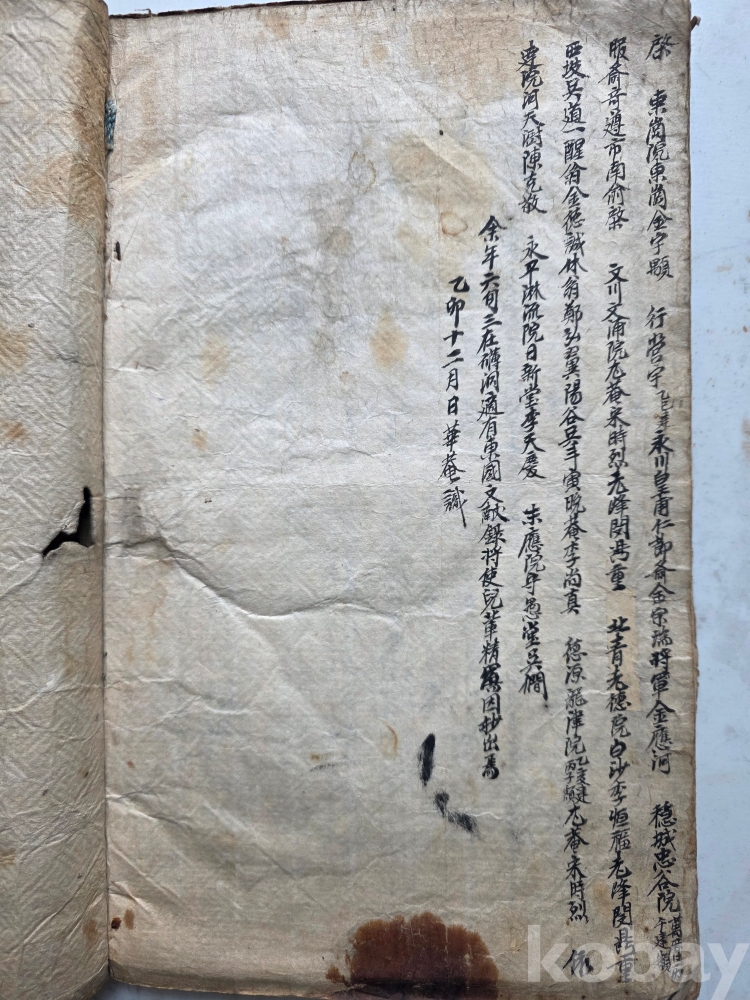 啓 東崗院東崗金宇顒 行營宇乙巳建永川皇甫仁節齋金宗瑞將軍金應河 穩城忠谷院
服齋奇遵市南俞棨 文川文浦院尤菴宋時烈老峰閔鼎重 北青老德院白沙李恒福老峰閔鼎重
西坡吳道一醒翁金德諴休翁鄭弘翼陽谷吳斗寅晩菴李尚真 德源龍津院乙亥建丙子額尤菴宋時烈
建院洞天 陳克敬 永平淋流院日新堂李天慶 院守愚堂吳僩
余年六旬三在 洞適有東國文獻錄將使兒輩精寫因抄出焉
乙卯十二月日華菴識
kobay